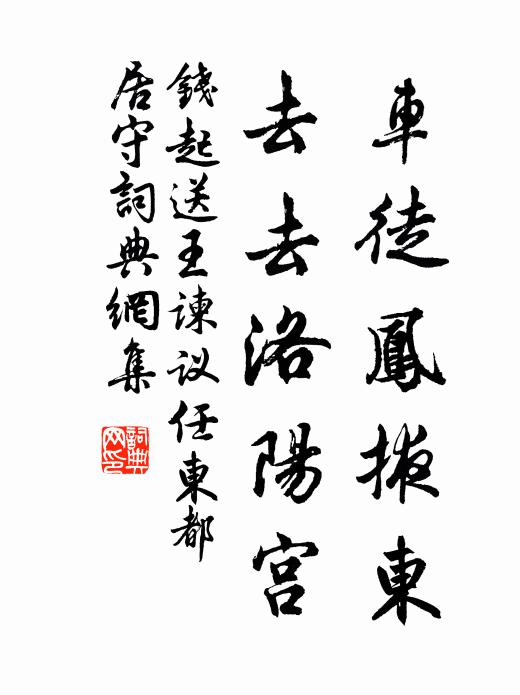 車徒鳳掖東
去去洛陽宮
錢起送王諫议任東都
居守詞典網集
詞典网印